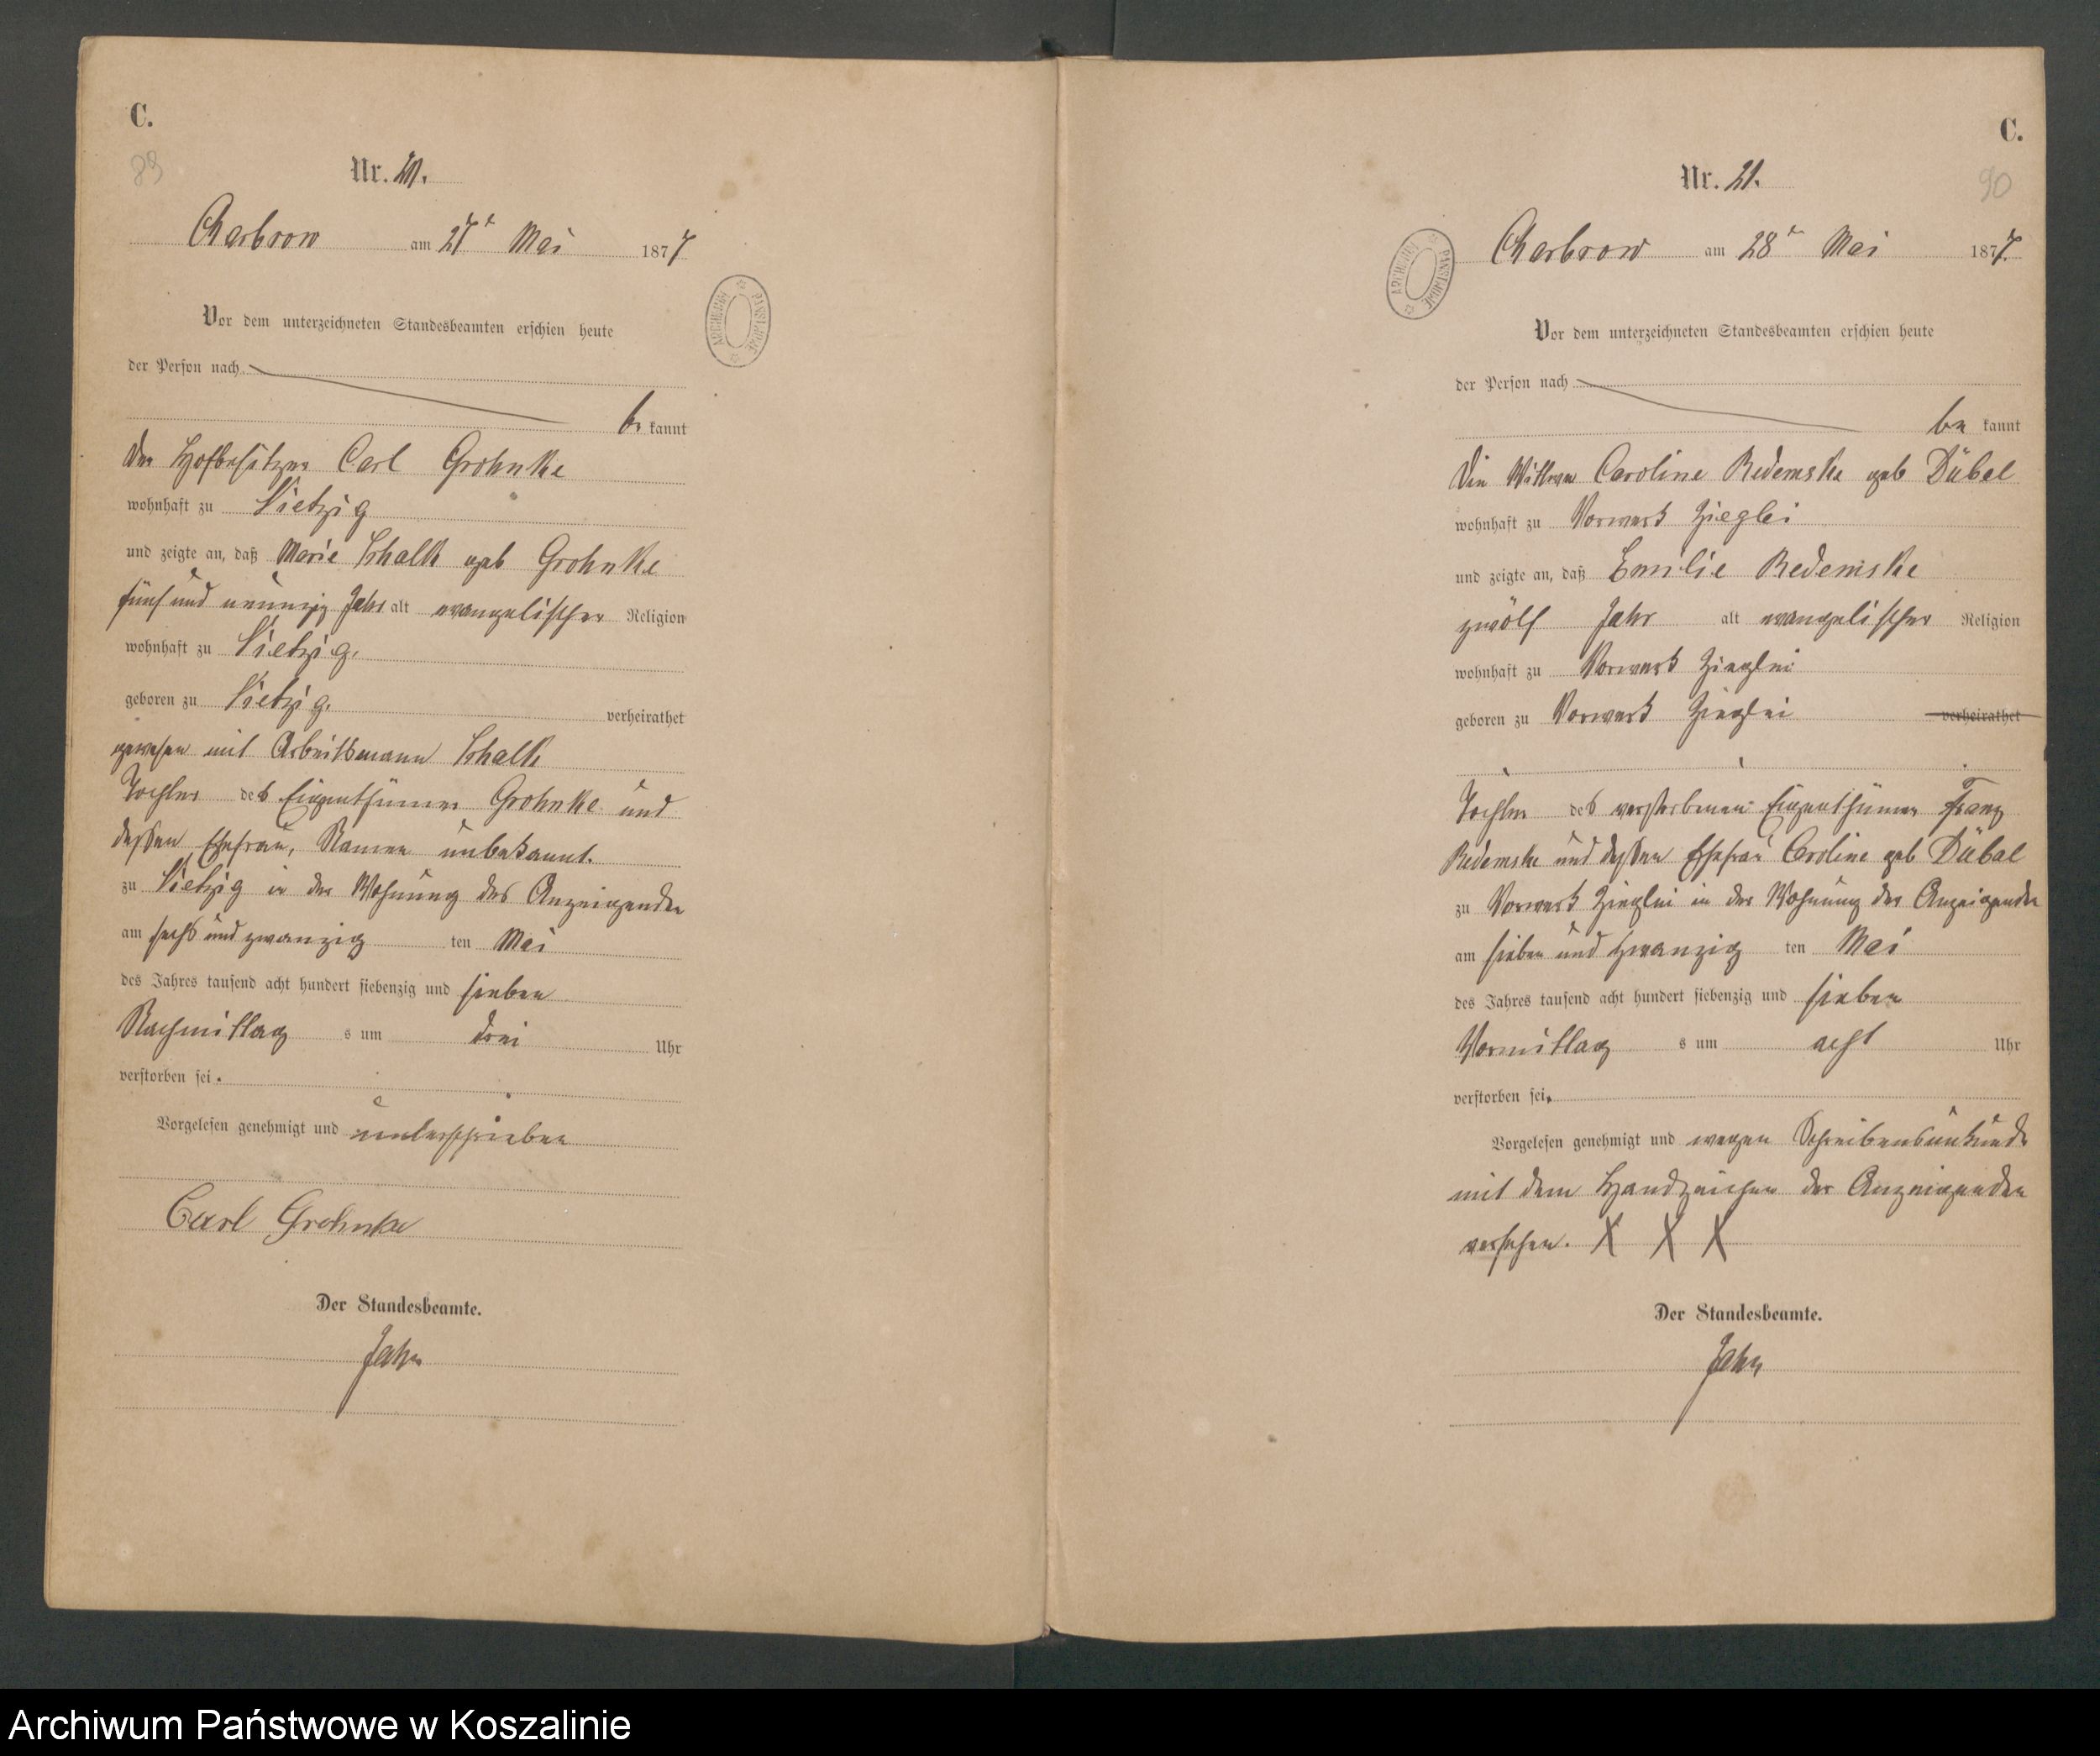 C.
89
Nr. 20.
Charbrow am 27t Mai 1877
Vor dem unterzeichneten Standesbeamten erschien heute
der Person nach
be kannt
der Hofbesitzer Carl Grohnke
wohnhaft zu Vietzig
und zeigte an, daß Marie Schalk geb Grohnke
fünf und neunzig Jahr alt evangelischer Religion
wohnhaft zu Vietzig.
geboren zu Vietzig. verheirathet
gewesen mit Arbeitsmann Schalk
Tochter des Eigenthümer Grohnke und
dessen Ehefrau, Namen unbekannt.
zu Vietzig in der Wohnung des Anzeigenden
am sechs und zwanzig ten Mai
des Jahres tausend acht hundert siebenzig und sieben
Nachmittag s um drei Uhr
verstorben sei.
Vorgelesen genehmigt und unterschrieben
Carl Grohnke
Der Standesbeamte.
Jahn
ARCHIWUM PAŃSTWOWE
C.
90
Nr. 21.
Charbrow am 28t Mai 1877.
Vor dem unterzeichneten Standesbeamten erschien heute
der Person nach
be kannt
die Wittwe Caroline Redemske geb Dübal
wohnhaft zu Vorwerk Zieglei
und zeigte an, daß Emilie Redemske
zwölf Jahr alt evangelischer Religion
wohnhaft zu Vorwerk Zieglei
geboren zu Vorwerk Zieglei verheirathet
Tochter des verstorbenen Eigenthümer Franz
Redemske und dessen Ehefrau Caroline geb Dübal
zu Vorwerk Zieglei in der Wohnung der Anzeigenden
am sieben und zwanzig ten Mai
des Jahres tausend acht hundert siebenzig und sieben
Vormittag s um acht Uhr
verstorben sei.
Vorgelesen genehmigt und wegen Schreibensunkunde
mit dem Handzeichen der Anzeigenden
versehen. X X X
Der Standesbeamte.
Jahn
ARCHIWUM PAŃSTWOWE
Archiwum Państwowe w Koszalinie